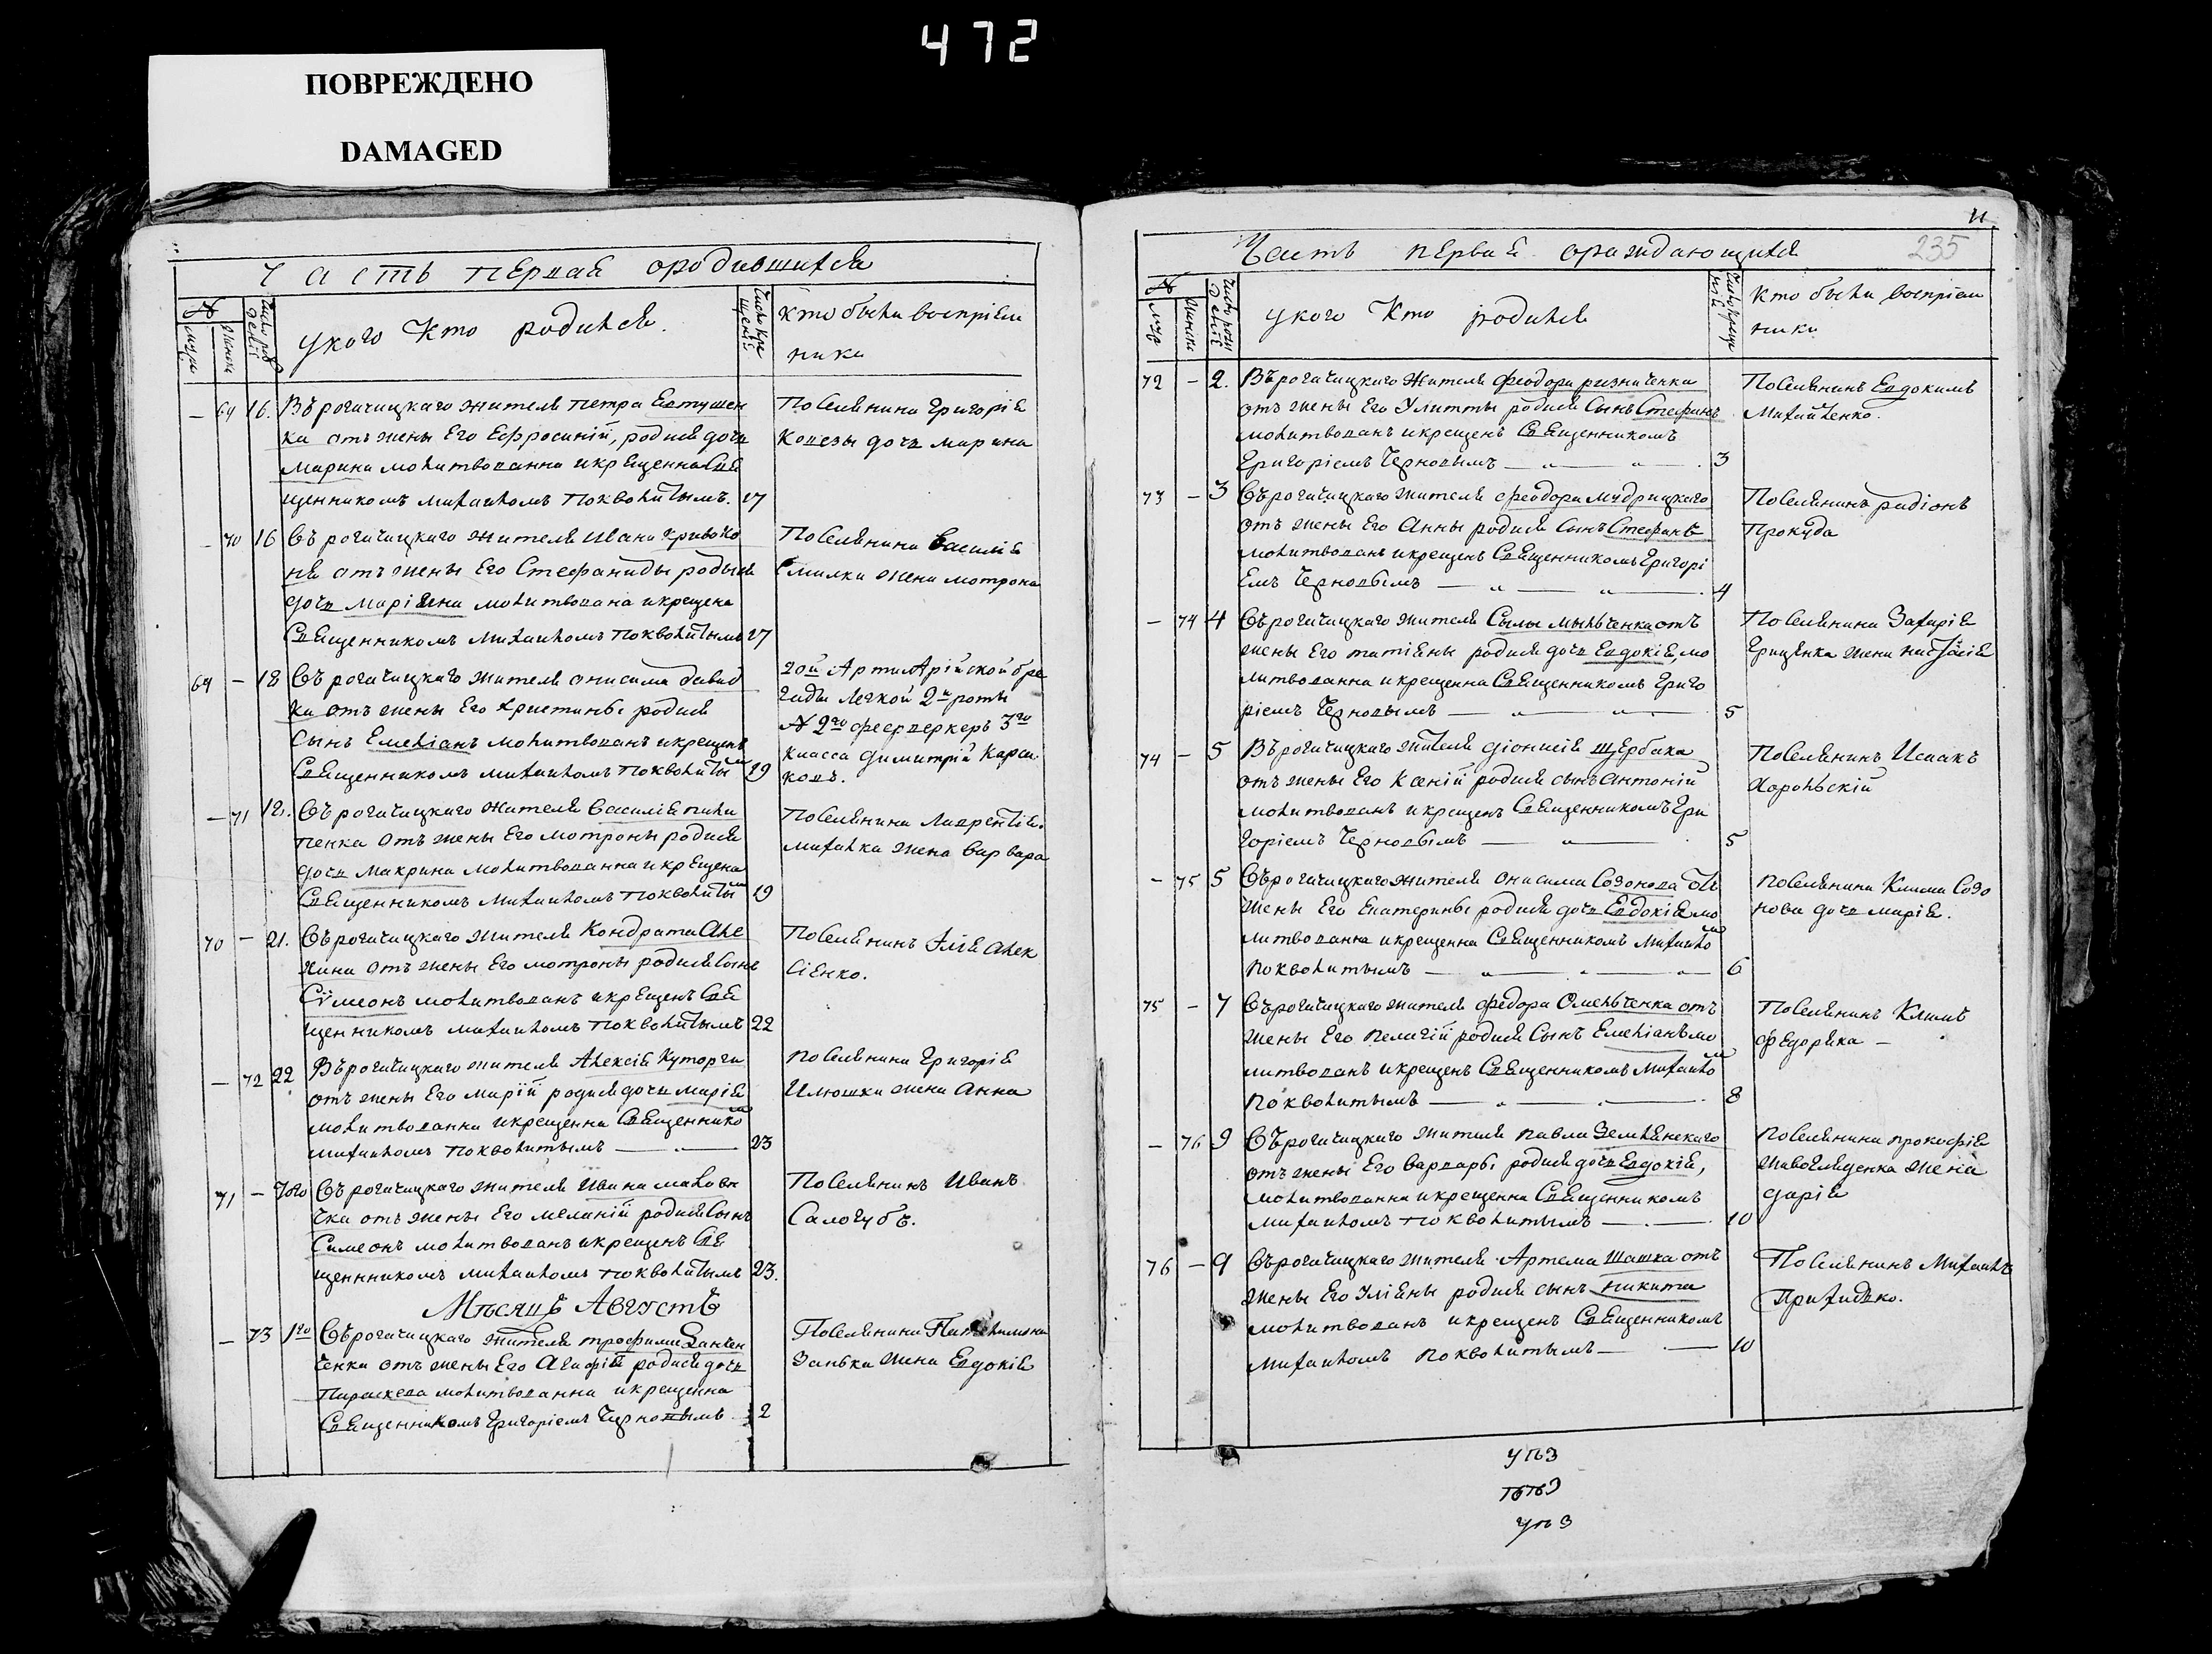 472
ПОВРЕЖДЕНО
DAMAGED
Часть первая ородившихся
№
Числ. рож
дения
у кого Кто родился.
Число кре
щения
Кто были воспріем
ники
Муж
Женск
— 69 16. Върогачицкаго жителя Петра Евтушен
ка отъ жены Его Ефросиній, родися дочь
Марина молитвованна икрещенна Свя
щенникомъ Михаиломъ Покволитымъ. 17
Поселянина Григорія
дочь Марина
— 70 16 Върогачицкаго жителя Ивана Кривоко
ня отъ жены Его Стефаниды родыся
дочь Маріяна молитвована икрещена
Священникомъ Михаиломъ Покволитымъ 17
Поселянина Василія
Смилки жена Мотрона
69 — 18 Върогачицкаго жителя Онисима Давид
ки отъ жены Его Христины родися
Сынъ Емеліанъ молитвованъ икрещенъ
Священникомъ Михаиломъ Покволиты 19
Артилѣрійской бри
гады легкой 2й роты
№ 2го феерверкеръ 3го
класса Димитрій Карса
ковъ.
— 71 18. Върогачицкаго жителя Василія Пили
пенка отъ жены Его Мотроны родися
дочь Макрина молитвованна икрещена
Священникомъ Михаиломъ Покволиты 19
Поселянина Лаврентія
Михалка жена Варвара
70 — 21. Върогачицкаго жителя Кондрата Але
хина отъ жены Его Мотроны родися Сынъ
Сімеонъ молитвованъ икрещенъ Свя
щенникомъ Михаиломъ Покволитымъ 22
Поселянинъ Ілія Алек
сіенко.
— 72 22 Върогачицкаго жителя Алексія Куторги
отъ жены Его Марій родися дочь Марія
молитвованна икрещенна Священнико
Михаиломъ Покволитымъ — 23
Поселянина Григорія
Илюшки жена Анна
71 — Върогачицкаго жителя Ивана Маловъ
чка отъ жены Его Меланій родися Сынъ
Симеонъ молитвованъ икрещенъ Свя
щеннникомъ Михаиломъ Покволитымъ 23.
Поселянинъ Иванъ
Салогубъ.
Мѣсяцъ Августъ
— 73 1го Върогачицкаго жителя Трофима
ченка отъ жены Его Агафій родися дочь
Параскева молитвованна икрещенна
Священникомъ Григоріемъ Черновымъ 2
Поселянина Пателимона
Занька жена Евдокія
Часть первая ораждающихся
235
№
Муж
Женск
Число рож
дения
у кого Кто родился
Кто были воспріем
ники
72 — 2. Върогачицкаго жителя Феодора Ризниченка
отъ жены Его Улитты родися Сынъ Стефанъ
молитвованъ икрещенъ Священникомъ
Григоріемъ Черновымъ — 3
Поселянинъ Евдокимъ
Михайленко.
73 — 3 Върогачицкаго жителя Феодора Мудрицкаго
отъ жены Его Анны родися Сынъ Стефанъ
молитвованъ икрещенъ Священникомъ Григорі
Емъ Черновымъ — 4
Поселянинъ Радіонъ
Прокуда
— 74 4 Върогачицкаго жителя Силы Мыльченка отъ
жены Его Татіяны родися дочь Евдокія, мо
литвованна икрещенна Священникомъ Григо
ріемъ Черновымъ — 5
Поселянина Захарія
Гриценка жена Настасія
74 — 5 Върогачицкаго жителя Діонисія Щербака
отъ жены Его Ксеній родися сынъ Антоній
молитвованъ икрещенъ Священникомъ Гри
горіемъ Черновымъ — 5
Поселянинъ Исаакъ
Харольскій
— 75 5 Върогачицкаго жителя Онисима Созонова отъ
жены Его Екатерины родися дочь Евдокія мо
литвованна икрещенна Священникомъ Михаило
Покволитымъ — 6
Поселянина Клима Созо
нова дочь Марія.
75 — 7 Върогачицкаго жителя Федора Омельченка отъ
жены Его Пелагій родися Сынъ Емеліанъ мо
литвованъ икрещенъ Священникомъ Михаило
Покволитымъ — 8
Поселянинъ Климъ
Федоряка —
— 76 9 Върогачицкаго жителя Павла Землянскаго
отъ жены Его Варвары родися дочь Евдокія,
молитвованна икрещенна Священникомъ
Михаиломъ Покволитымъ — 10
Поселянина Прокофія
жена
Дарія
76 — 9 Върогачицкаго жителя Артема Шашка отъ
жены Его Уліяны родися сынъ Никита
молитвованъ икрещенъ Священникомъ
Михаиломъ Покволитымъ — 10
Поселянинъ Михаилъ
Прихидько.